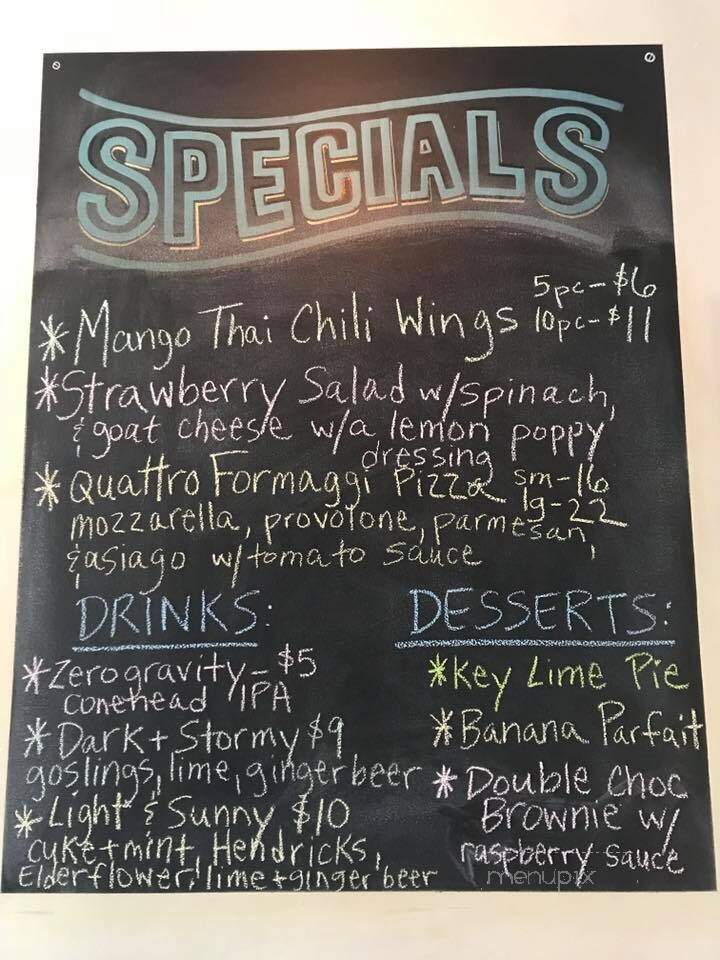 SPECIALS
5pc-$6
*Mango Thai Chili Wings 10pc-$11
*Strawberry Salad w/spinach,
& goat cheese w/a lemon poppy
dressing
*Quattro Formaggi Pizza sm-16
lg-22
mozzarella, provolone, parmesan,
& asiago w/tomato sauce
DRINKS:
*Zero gravity-$5
conehead IPA
*Dark + Stormy $9
goslings, lime, ginger beer
*Light & Sunny $10
cuke + mint, Hendricks,
Elderflower, lime + ginger beer
DESSERTS:
*Key Lime Pie
*Banana Parfait
*Double Choc
Brownie w/
raspberry sauce
menupix